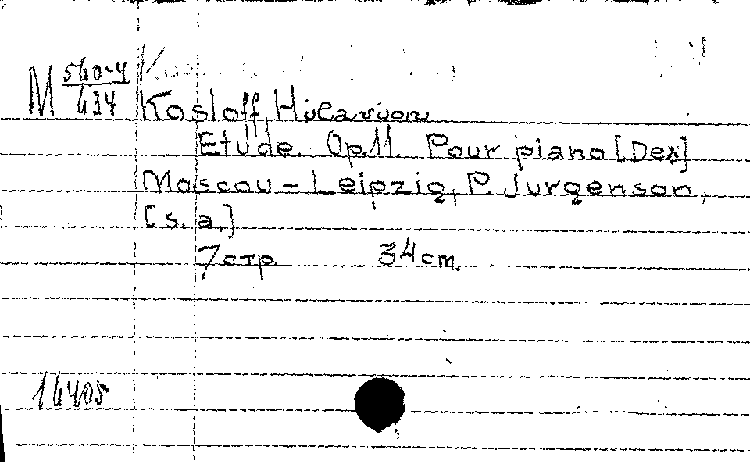 M 560-4/634
Kosloff, Hilarion
Etude. Op.11. Pour piano [Des]
Moscou – Leipzig, P. Jurgenson,
[s. a.]
7 стр. 34 cm.
16405